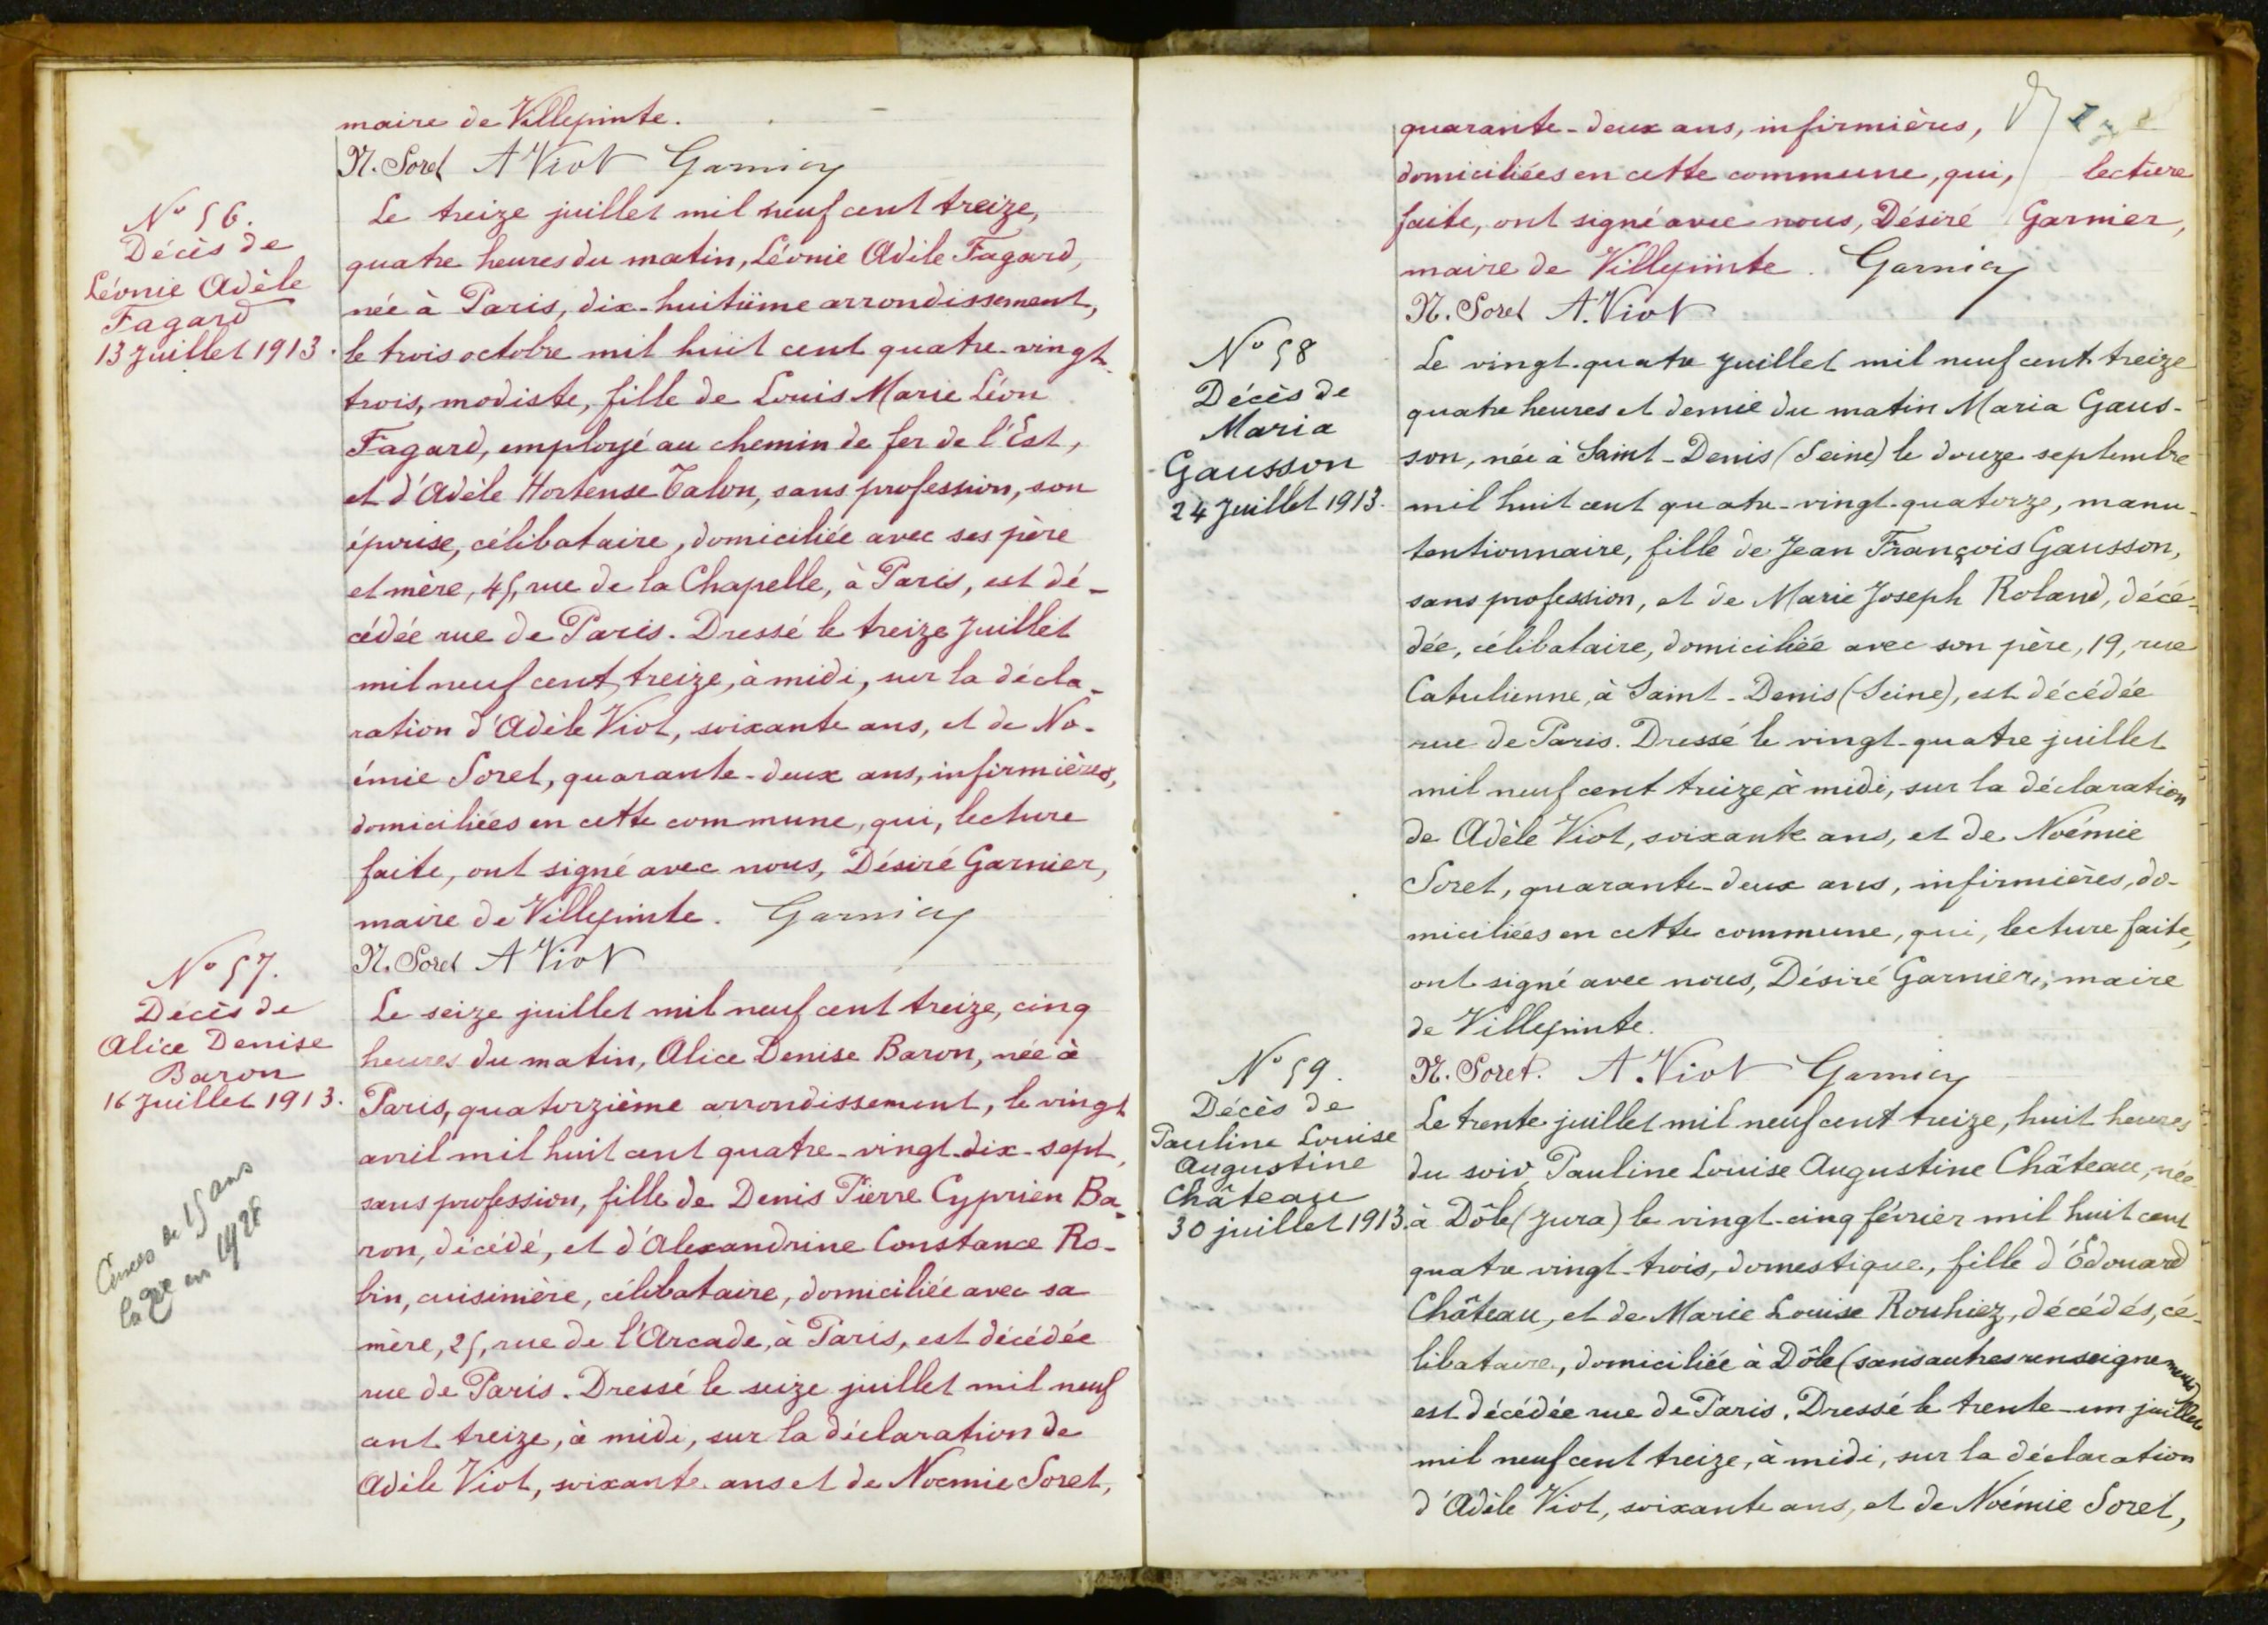 maire de Villepinte.
N. Soret A Viot Garnier
N° 56.
Décès de
Léonie Adèle
Fagard
13 Juillet 1913.
Le treize juillet mil neuf cent treize,
quatre heures du matin, Léonie Adèle Fagard,
née à Paris, dix-huitième arrondissement,
le trois octobre mil huit cent quatre-vingt
trois, modiste, fille de Louis Marie Léon
Fagard, employé au chemin de fer de l'Est,
et d'Adèle Hortense Talon, sans profession, son
épouse, célibataire, domiciliée avec ses père
et mère, 45, rue de la Chapelle, à Paris, est dé-
cédée rue de Paris. Dressé le treize Juillet
mil neuf cent treize, à midi, sur la décla-
ration d'Adèle Viot, soixante ans, et de No-
émie Soret, quarante-deux ans, infirmières,
domiciliées en cette commune, qui, lecture
faite, ont signé avec nous, Désiré Garnier,
maire de Villepinte. Garnier
N. Soret A Viot
N° 57.
Décès de
Alice Denise
Baron
16 Juillet 1913.
de 15 ans
en 1928
Le seize juillet mil neuf cent treize, cinq
heures du matin, Alice Denise Baron, née à
Paris, quatorzième arrondissement, le vingt
avril mil huit cent quatre-vingt-dix-sept,
sans profession, fille de Denis Pierre Cyprien Ba-
ron, décédé, et d'Alexandrine Constance Ro-
bin, cuisinière, célibataire, domiciliée avec sa
mère, 25, rue de l'Arcade, à Paris, est décédée
rue de Paris. Dressé le seize juillet mil neuf
cent treize, à midi, sur la déclaration de
Adèle Viot, soixante ans et de Noémie Soret,
quarante-deux ans, infirmières,
domiciliées en cette commune, qui, lecture
faite, ont signé avec nous, Désiré Garnier,
maire de Villepinte. Garnier
N. Soret A. Viot
N° 58
Décès de
Maria
Gausson
24 Juillet 1913.
Le vingt-quatre juillet mil neuf cent treize
quatre heures et demie du matin Maria Gaus-
son, née à Saint-Denis (Seine) le douze septembre
mil huit cent quatre-vingt-quatorze, manu-
tentionnaire, fille de Jean François Gausson,
sans profession, et de Marie Joseph Roland, décé-
dée, célibataire, domiciliée avec son père, 19, rue
Catulienne, à Saint-Denis (Seine), est décédée
rue de Paris. Dressé le vingt-quatre juillet
mil neuf cent treize, à midi, sur la déclaration
de Adèle Viot, soixante ans, et de Noémie
Soret, quarante-deux ans, infirmières, do-
miciliées en cette commune, qui, lecture faite,
ont signé avec nous, Désiré Garnier, maire
de Villepinte.
N. Soret. A. Viot Garnier
N° 59.
Décès de
Pauline Louise
Augustine
Château
30 juillet 1913.
Le trente juillet mil neuf cent treize, huit heures
du soir, Pauline Louise Augustine Château, née
à Dôle (Jura) le vingt-cinq février mil huit cent
quatre vingt-trois, domestique, fille d'Édouard
Château, et de Marie Louise Rouhiez, décédés, cé-
libataire, domiciliée à Dôle (sans autres renseignements)
est décédée rue de Paris. Dressé le trente-un juillet
mil neuf cent treize, à midi, sur la déclaration
d'Adèle Viot, soixante ans, et de Noémie Soret,